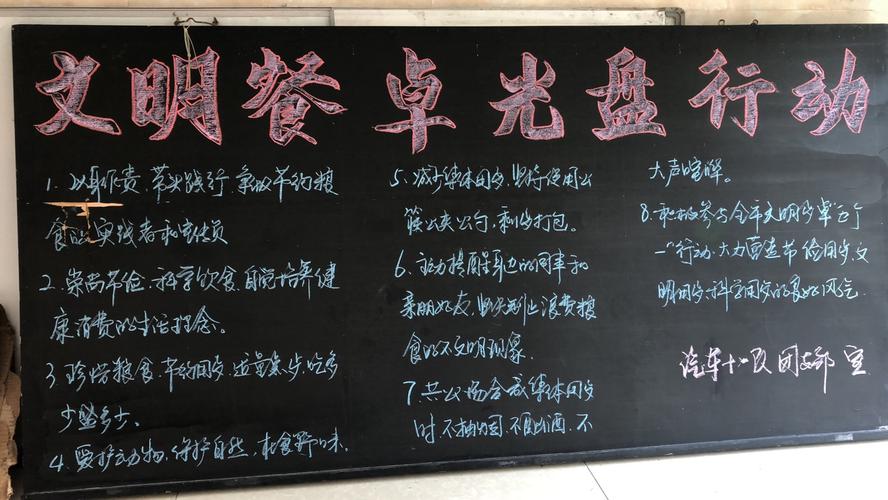 文明餐卓光盘行动
1. 以身作责、带头践行、争做节约粮
食的实践者和宣传员
2. 崇尚节俭、科学饮食、自觉培养健
康消费的生活理念。
3. 珍惜粮食、节约用歺、适量点歺、吃多
少盛多少。
4. 爱护动物、保护自然、杜食野味。
5. 减少集体用歺、坚持使用公
筷公夹公勺、剩歺打包。
6. 主动提醒身边的同事和
亲朋好友、坚决制止浪费粮
食的不文明现象.
7. 共公场合或集体用歺
时、不抽烟、不酗酒、不
大声喧哗。
8. 积极参与全年文明歺卓"五个
一"行动、大力营造节俭用歺、文
明用歺、科学用歺的良好风气.
汽车十一队团支部 宣